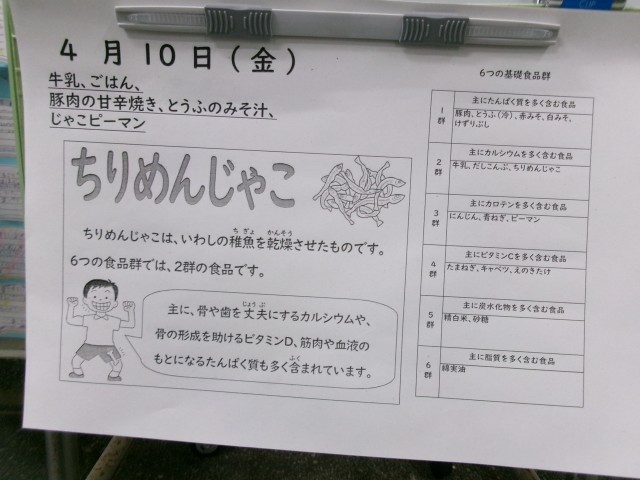 4月10日(金)
牛乳、ごはん、
豚肉の甘辛焼き、とうふのみそ汁、
じゃこピーマン
ちりめんじゃこ
ちりめんじゃこは、いわしの稚魚を乾燥させたものです。
ちぎょ かんそう
6つの食品群では、2群の食品です。
主に、骨や歯を丈夫にするカルシウムや、
じょうぶ
骨の形成を助けるビタミンD、筋肉や血液の
もとになるたんぱく質も多く含まれています。
ふく
6つの基礎食品群
1群
主にたんぱく質を多く含む食品
豚肉、とうふ(冷)、赤みそ、白みそ、
けずりぶし
2群
主にカルシウムを多く含む食品
牛乳、だしこんぶ、ちりめんじゃこ
3群
主にカロテンを多く含む食品
にんじん、青ねぎ、ピーマン
4群
主にビタミンCを多く含む食品
たまねぎ、キャベツ、えのきたけ
5群
主に炭水化物を多く含む食品
精白米、砂糖
6群
主に脂質を多く含む食品
綿実油